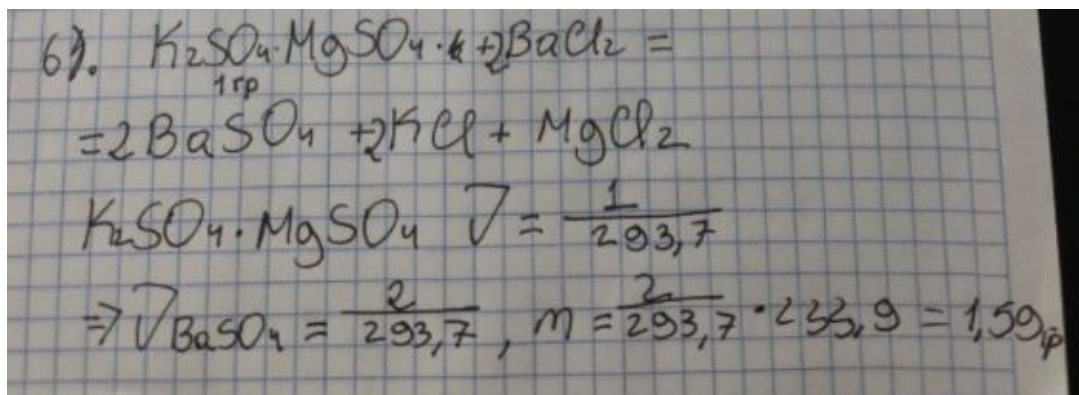 6). K₂SO₄·MgSO₄· +2BaCl₂ =
1гр
=2BaSO₄ +2KCl + MgCl₂
K₂SO₄·MgSO₄ ν = 1/293,7
⇒ ν BaSO₄ = 2/293,7 , m = 2/293,7 · 233,9 = 1,59гр